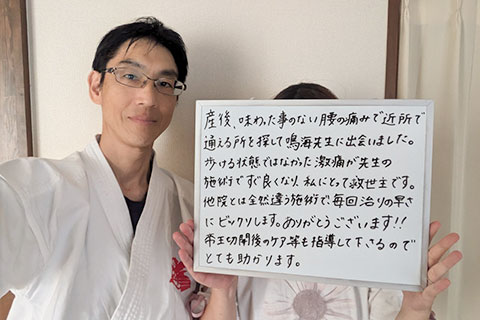 産後、味わった事のない腰の痛みで近所で
通える所を探して鳴海先生に出会いました。
歩ける状態ではなかった激痛が先生の
施術ですぐ良くなり、私にとって救世主です。
他院とは全然違う施術で毎回治りの早さ
にビックリします。ありがとうございます!!
帝王切開後のケア等も指導して下さるので
とても助かります。